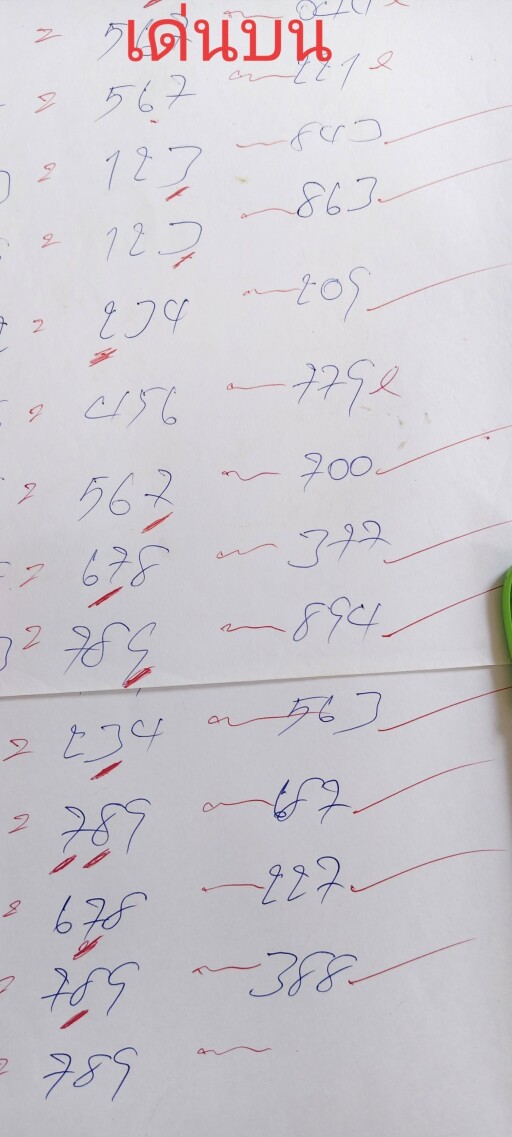 เด่นบน
= 567
= 567 ~ 221 e
= 123 ~ 843
= 123 ~ 863
= 234 ~ 209
= 456 ~ 779 e
= 567 ~ 700
= 678 ~ 377
= 789 ~ 894
= 234 ~ 563
= 789 ~ 687
= 678 ~ 227
= 789 ~ 388
= 789 ~